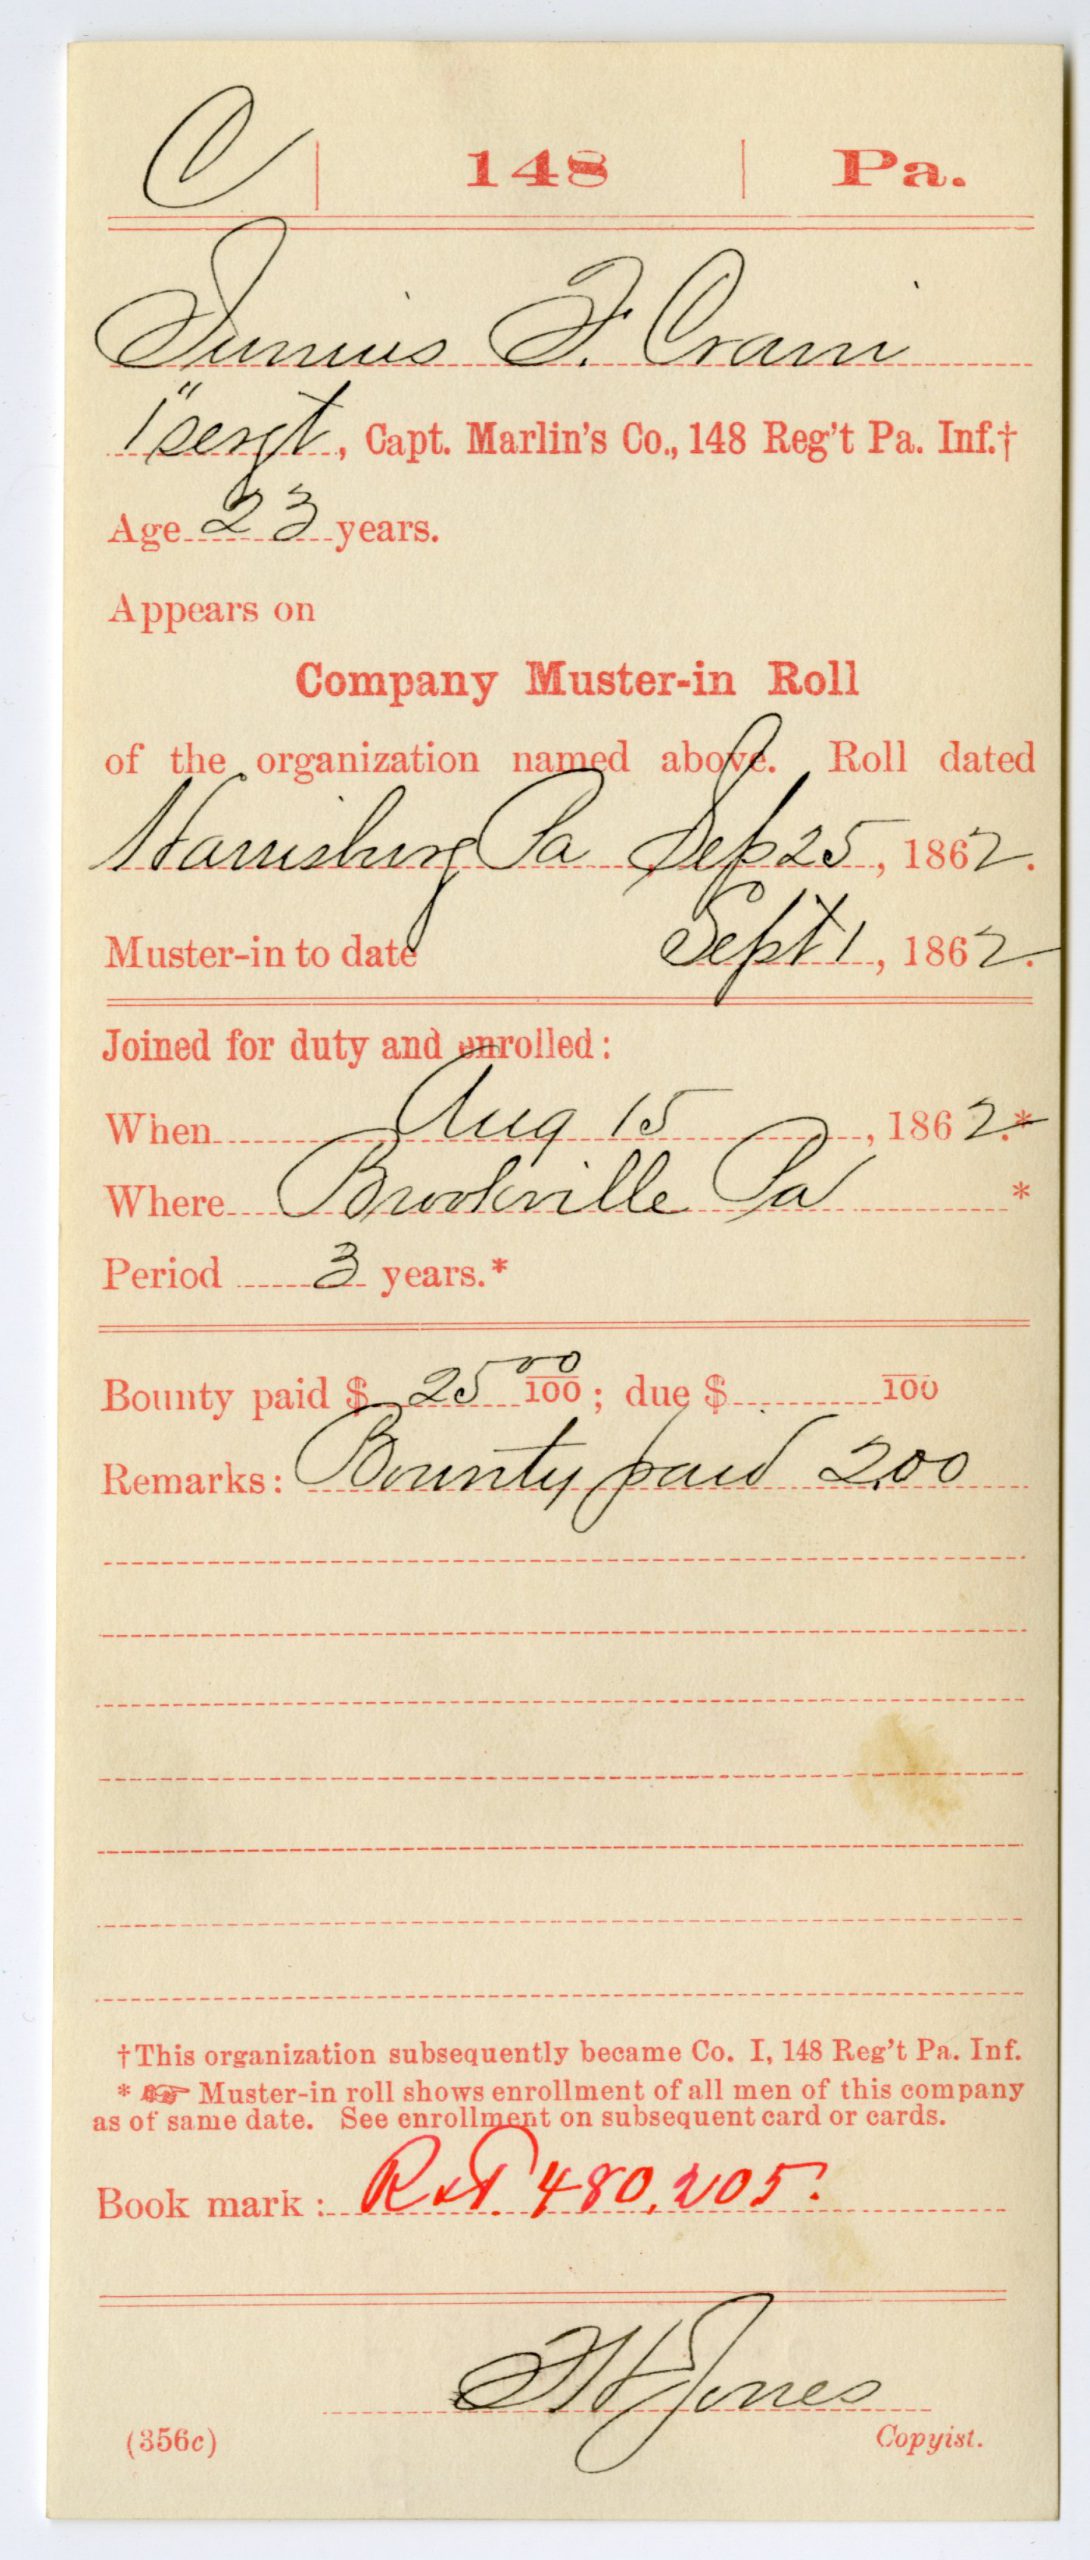 C | 148 | Pa.
Junius F. Crain
1" sergt, Capt. Marlin's Co., 148 Reg't Pa. Inf.†
Age 23 years.
Appears on
Company Muster-in Roll
of the organization named above. Roll dated
Harrisburg Pa Sep 25, 1862.
Muster-in to date Sept 1, 1862.
Joined for duty and enrolled:
When Aug 15, 1862.*
Where Brookville Pa *
Period 3 years.*
Bounty paid $ 25 00/100; due $ 100
Remarks: Bounty paid 2.00
†This organization subsequently became Co. I, 148 Reg't Pa. Inf.
* ☞ Muster-in roll shows enrollment of all men of this company
as of same date. See enrollment on subsequent card or cards.
Book mark: R&P. 480,205.
Jones
(356c) Copyist.